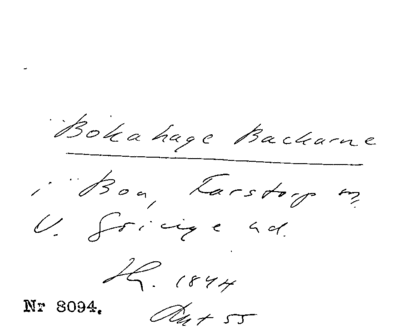 Bökahage Backarne
i Boa, Farstorp
V. Göinge hd.
1844
Nr 8094.
55